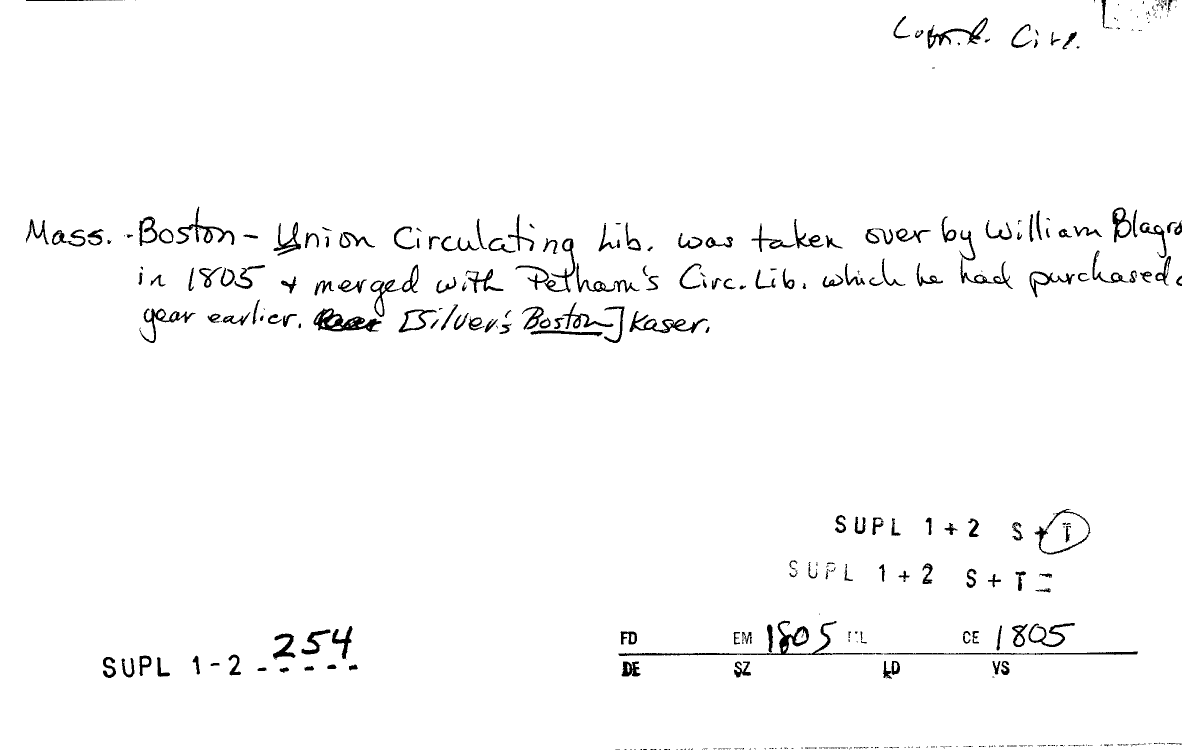 Circ.
Mass. - Boston - Union Circulating Lib. was taken over by William Blagro
in 1805 + merged with Pelham's Circ. Lib. which he had purchased a
year earlier. [Silver's Boston] Kaser.
SUPL 1+2 S+T
SUPL 1+2 S+T=
SUPL 1-2 - 254
FD EM 1805 CE 1805
DE SZ LD VS